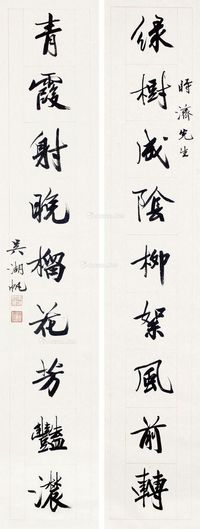 綠樹成陰柳絮風前轉
時濟先生
青霞射晚榴花芳豔濃
吳湖帆